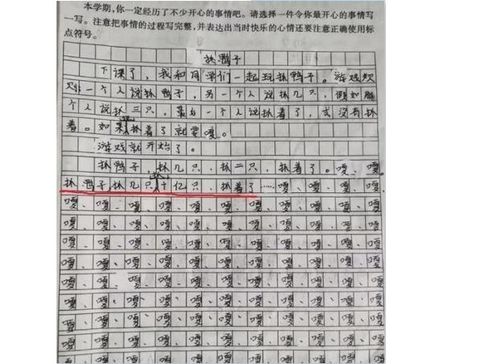 本学期,你一定经历了不少开心的事情吧。请选择一件令你最开心的事情写
一写。注意把事情的过程写完整,并表达出当时快乐的心情还要注意正确使用标
点符号。
抓鸭子
下课了,我和同学们一起玩抓鸭子。游戏规
则一个人说抓鸭子,另一个人说抓几只,假如那
个人说抓三只,第三个人说抓着了,或没有抓
着。如果抓着了就要嘎。
游戏就开始了。
抓鸭子,抓几只,抓二只,抓着了。嘎、嘎。
抓鸭子,抓几只,十亿只,抓着了……嘎、嘎、嘎、
嘎、嘎、嘎、嘎、嘎、嘎、嘎、嘎、
嘎、嘎、嘎、嘎、嘎、嘎、嘎、嘎、
嘎、嘎、嘎、嘎、嘎、嘎、嘎、嘎、
嘎、嘎、嘎、嘎、嘎、嘎、嘎、嘎、
嘎、嘎、嘎、嘎、嘎、嘎、嘎、嘎、
嘎、嘎、嘎、嘎、嘎、嘎、嘎、嘎、
嘎、嘎、嘎、嘎、嘎、嘎、嘎、嘎、
嘎、嘎、嘎、嘎、嘎、嘎、嘎、嘎、
嘎、嘎、嘎、嘎、嘎、嘎、嘎、嘎、